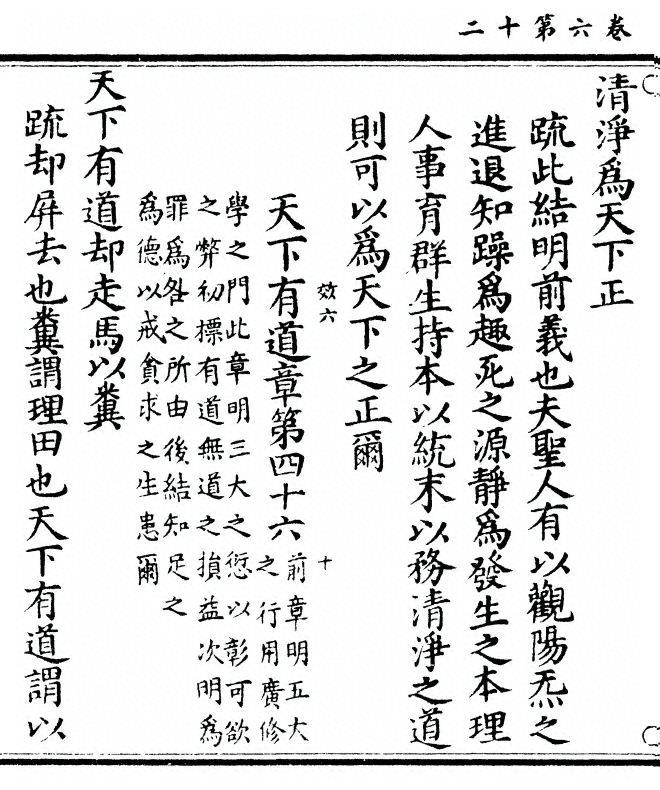 卷六第十二
清淨爲天下正
疏此結明前義也夫聖人有以觀陽炁之
進退知躁爲趣死之源靜爲發生之本理
人事育群生持本以統末以務清淨之道
則可以爲天下之正爾
效六
十
天下有道章第四十六
前章明五大
之行用廣修
學之門此章明三大之愆以彰可欲
之弊初標有道無道之損益次明爲
罪爲咎之所由後結知足之
爲德以戒貪求之生患爾
天下有道却走馬以糞
疏却屏去也糞謂理田也天下有道謂以